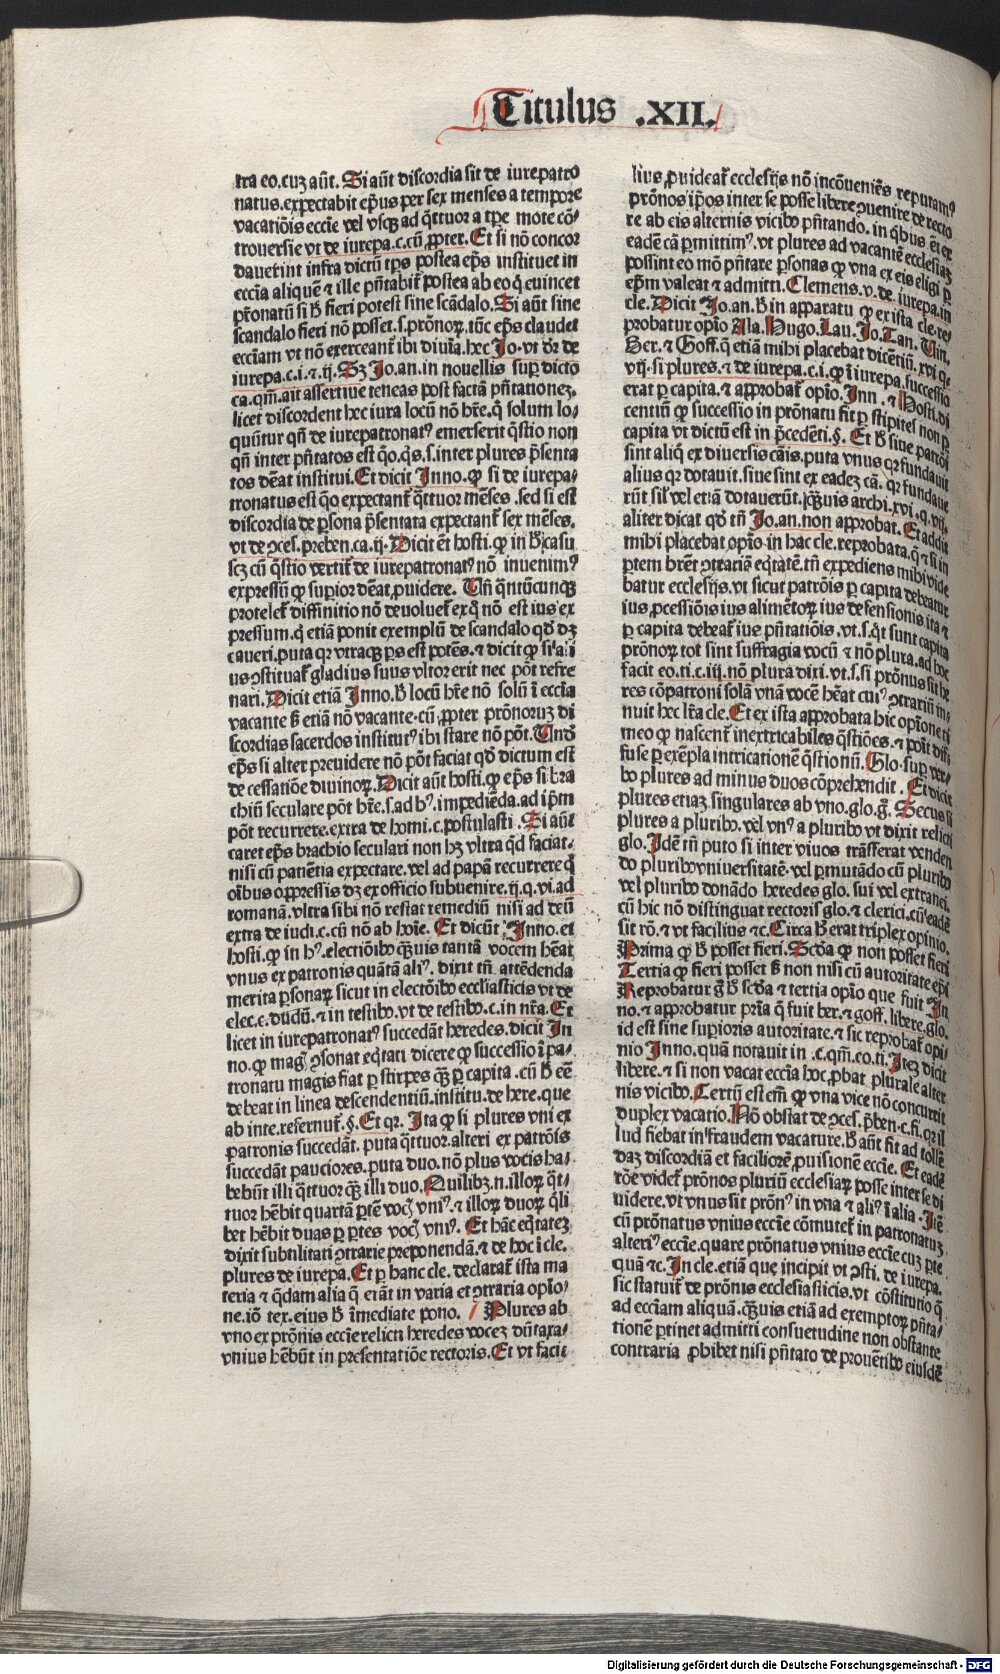 Titulus .XII.
tra eo.cuz aūt. Si aūt discordia sit de iurepatro
natus.expectabit ep̄us per sex menses a tempore
vacatiōis eccīe vel vsq̃ ad q̄ttuor a tp̄e mote cō⸗
trouersie vt de iurepa.c.cū ꝓpter. Et si nō concor
dauerint infra dictū tp̄s postea ep̄s instituet in
eccīa aliquē ⁊ ille pn̄tabit᷑ postea ab eo q̄ euincet
pr̄onatū si ħ fieri potest sine scādalo. Si aūt sine
scandalo fieri nō posset.s.prōnoꝝ.tūc ep̄s claudet
eccīam vt nō exerceant᷑ ibi diuīa.hec Jo.vt dr̄ de
iurepa.c.i.⁊.ij. Sꝫ Jo.an.in nouellis suꝑ dicto
ca.qm̄.ait assertiue teneas post factā pn̄tationez,
licet discordent hec iura locū nō hr̄e.q̄ solum lo⸗
quūtur qn̄ de iurepatronatꝰ emerserit q̄stio non
qn̄ inter pn̄tatos est q̄o.q̄s.s.inter plures p̄senta
tos dēat institui. Et dicit Inno.ꝙ si de iurepa⸗
tronatus est q̄o expectant᷑ q̄ttuor mēses.sed si est
discordia de ꝑsona p̄sentata expectant᷑ sex mēses.
vt de ꝯces.preben.ca.ij. Dicit ēt hosti.ꝙ in ħ casu
scꝫ cū q̄stio vertit᷑ de iurepatronatꝰ nō inuenimꝰ
expressū ꝙ suꝑior dēat ꝓuidere. Vn̄ q̄ntūcunqꝫ
protelet᷑ diffinitio nō deuoluet᷑ ex q̄ nō est ius ex
pressum.q̄ etiā ponit exemplū de scandalo qd̄ dꝫ
caueri.puta qꝛ vtraqꝫ ps est potēs.⁊ dicit ꝙ
us ꝯstituat᷑ gladius suus vltor erit nec pōt refre
nari. Dicit etiā Inno.ħ locū hr̄e nō solū ī eccīa
vacante ß etiā nō vacante.cū ꝓpter prōnoruz di
scordias sacerdos institutꝰ ibi stare nō pōt. Vnō
ep̄s si alter preuidere nō pōt faciat qd̄ dictum est
de cessatiōe diuinoꝝ. Dicit aūt hosti.ꝙ ep̄s si bra
chiū seculare pōt hr̄e.s.ad hꝰ.impediēda.ad ip̄m
pōt recurrere.extra de homi.c.postulasti. Si aūt
caret ep̄s brachio seculari non hꝫ vltra qd̄ faciat.
nisi cū patiētia expectare.vel ad papā recurrere q̄
oībus oppressis dꝫ ex officio subuenire.ij.q.vi.ad
romanā.vltra sibi nō restat remediū nisi ad deū
extra de iudi.c.cū nō ab hoīe. Et dicūt Inno.et
hosti.ꝙ in hꝰ.electiōibꝰ q̄uis tantā vocem hēat
vnus ex patronis quātā aliꝰ.dixit tn̄ attēdenda
merita ꝑsonaꝝ sicut in electōibꝰ eccliasticis vt de
elec.c.dudū.⁊ in testibꝰ.vt de testibꝰ.c.in nr̄a. Et
licet in iurepatronatꝰ succedāt heredes.dicit In
no.ꝙ magꝭ ꝯsonat eq̄tati dicere ꝙ successio ī pa⸗
tronatu magis fiat ꝑ stirpes q̄ꝫ ꝑ capita.cū ħ eē
debeat in linea descendentiū.institu.de here.que
ab inte.refernut᷑.§. Et qꝛ. Ita ꝙ si plures vni ex
patronis succedāt.puta q̄ttuor.alteri ex patrōis
succedāt pauciores.puta duo.nō plus vocis ha⸗
bebūt illi q̄ttuor q̄ꝫ illi duo. Quilibꝫ.n.illoꝝ q̄t⸗
tuor hēbit quartā ꝑtē vocꝭ vniꝰ.⁊ illoꝝ duoꝝ q̄li
bet hēbit duas ꝑ ꝑtes vocꝭ vniꝰ. Et hāc eq̄tatez
dixit subtilitati ꝯtrarie preponendā.⁊ de hoc ī cle.
plures de iurepa. Et ꝑ hanc cle.declarat᷑ ista ma
teria ⁊ q̄dam alia q̄ erāt in varia et ꝯtraria opīo⸗
ne.iō tex.eius ħ īmediate pono. Plures ab
vno ex prōnis eccīe relicti heredes vocez dūtaxa⸗
vnius hēbūt in presentatiōe rectoris. Et vt facit
lius ꝓuideat᷑ ecclesijs nō incōueniēs reputamꝰ
prōnos ip̄os inter se posse libere ꝯuenire de recto
re ab eis alternis vicibꝰ pn̄tando.in q̄bus ēt ex
eadē cā ꝑmittimꝰ.vt plures ad vacantē ecclesiaz
possint eo mō pn̄tare ꝑsonas ꝙ vna ex eis eligi ꝑ
ep̄m valeat ⁊ admitti. Clemens.v.de iurepa.in
cle. Dicit Jo.an.ħ in apparatu ꝙ ex ista cle.res
probatur opīo Ala. Hugo. Lau. Jo. Tan. Vin.
Ber.⁊ Goff.q̄ etiā mihi placebat dicentiū.xvi.q.
vij.si plures.⁊ de iurepa.c.i.ꝙ ī iurepa.successio
erat ꝑ capita.⁊ approbat᷑ opīo. Inn.⁊ Hosti.di
centiū ꝙ successio in prōnatu fit ꝑ stipites non ꝑ
capita vt dictū est in p̄cedēti.§. Et ħ siue patrōi
sint aliq̄ ex diuersis cāis.puta vnus qꝛ fundauit
alius qꝛ dotauit.siue sint ex eadez cā.qꝛ fundaue
rūt sil̄ vel etiā dotauerūt.q̄uis archi.xvi.q.vij.
aliter dicat qd̄ tn̄ Jo.an.non approbat. Et addit
mihi placebat opīo in hac cle.reprobata.q̄ ⁊ si in
ꝑtem hr̄et ꝯtrariā eq̄tatē.tn̄ expediens mihi vide
batur ecclesijs.vt sicut patrōis ꝑ capita debeatur
ius ꝓcessiōis ius alimētoꝝ ius defensionis.ita ⁊
ꝑ capita debeat᷑ ius pn̄tatiōis.vt.s.q̄t sunt capita
prōnoꝝ tot sint suffragia vocū ⁊ nō plura.ad hoc
facit eo.ti.c.iij.nō plura dixi.vt.s.si prōnus sit he
res cōpatroni solā vnā vocē hēat cuiꝰ ꝯtrariū in
nuit hec lr̄a cle. Et ex ista approbata hic opīone ti
meo ꝙ nascent᷑ inextricabiles q̄stiōes.⁊ poīt dif⸗
fuse ꝑ exēpla intricationē q̄stionū. Glo.suꝑ ver⸗
bo plures ad minus duos cōprehendit. Et dicit
plures etiaz singulares ab vno.glo.g̃. Secus si
plures a pluribꝰ.vel vnꝰ a pluribꝰ vt dixit relicti
glo. Idē tn̄ puto si inter viuos trāsferat venden
do pluribꝰ vniuersitatē.vel ꝑmutādo cū pluribꝰ
vel pluribꝰ donādo heredes glo.sui vel extranei.
cū hic nō distinguat rectoris glo.⁊ clerici.cū eadē
sit rō.⁊ vt facilius ⁊c. Circa ħ erat triplex opinio.
Prima ꝙ ħ posset fieri. Scd̄a ꝙ non posset fieri
Tertia ꝙ fieri posset ß non nisi cū autoritate ep̄i
Reprobatur g̃ ħ scd̄a ⁊ tertia opīo que fuit In
no.⁊ approbatur prīa q̄ fuit ber.⁊ goff.libere.glo.
id est sine suꝑioris autoritate.⁊ sic reprobat᷑ opi⸗
nio Inno.quā notauit in.c.qm̄.eo.ti. Itez dicit
libere.⁊ si non vacat eccīa hoc ꝓbat plurale alter
nis vicibꝰ. Certū est em̄ ꝙ vna vice nō concurrit
duplex vacatio. Nō obstat de ꝯces.p̄ben.c.fi.qꝛ il
lud fiebat in fraudem vacature.ħ aūt fit ad tollē
daz discordiā et faciliorē ꝓuisionē eccīe. Et eadē
rōe videt᷑ prōnos pluriū ecclesiaꝝ posse inter se di
uidere.vt vnus sit prōnꝰ in vna ⁊ aliꝰ ī alia. Itē
cū prōnatus vnius eccīe cōmutet᷑ in patronatuz
alteriꝰ eccīe.quare prōnatus vnius eccīe cuz ꝑte
quā ⁊c. In cle.etiā que incipit vt ꝯsti.de iurepa.
sic statuit᷑ de prōnis ecclesiasticis.vt cōstitutio q̄
ad eccīam aliquā.q̄uis etiā ad exemptoꝝ pn̄ta⸗
tionē ꝑtinet admitti consuetudine non obstante
contraria ꝓhibet nisi pn̄tato de prouētibꝰ eiusdē
Digitalisierung gefördert durch die Deutsche Forschungsgemeinschaft - DFG